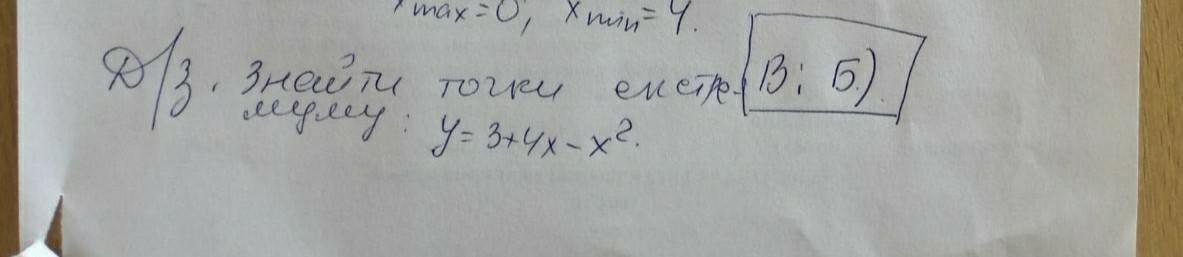 xmax=0; xmin=4.
Д/З. Знайти точки екстре- В; Б).
муму: y=3+4x-x².